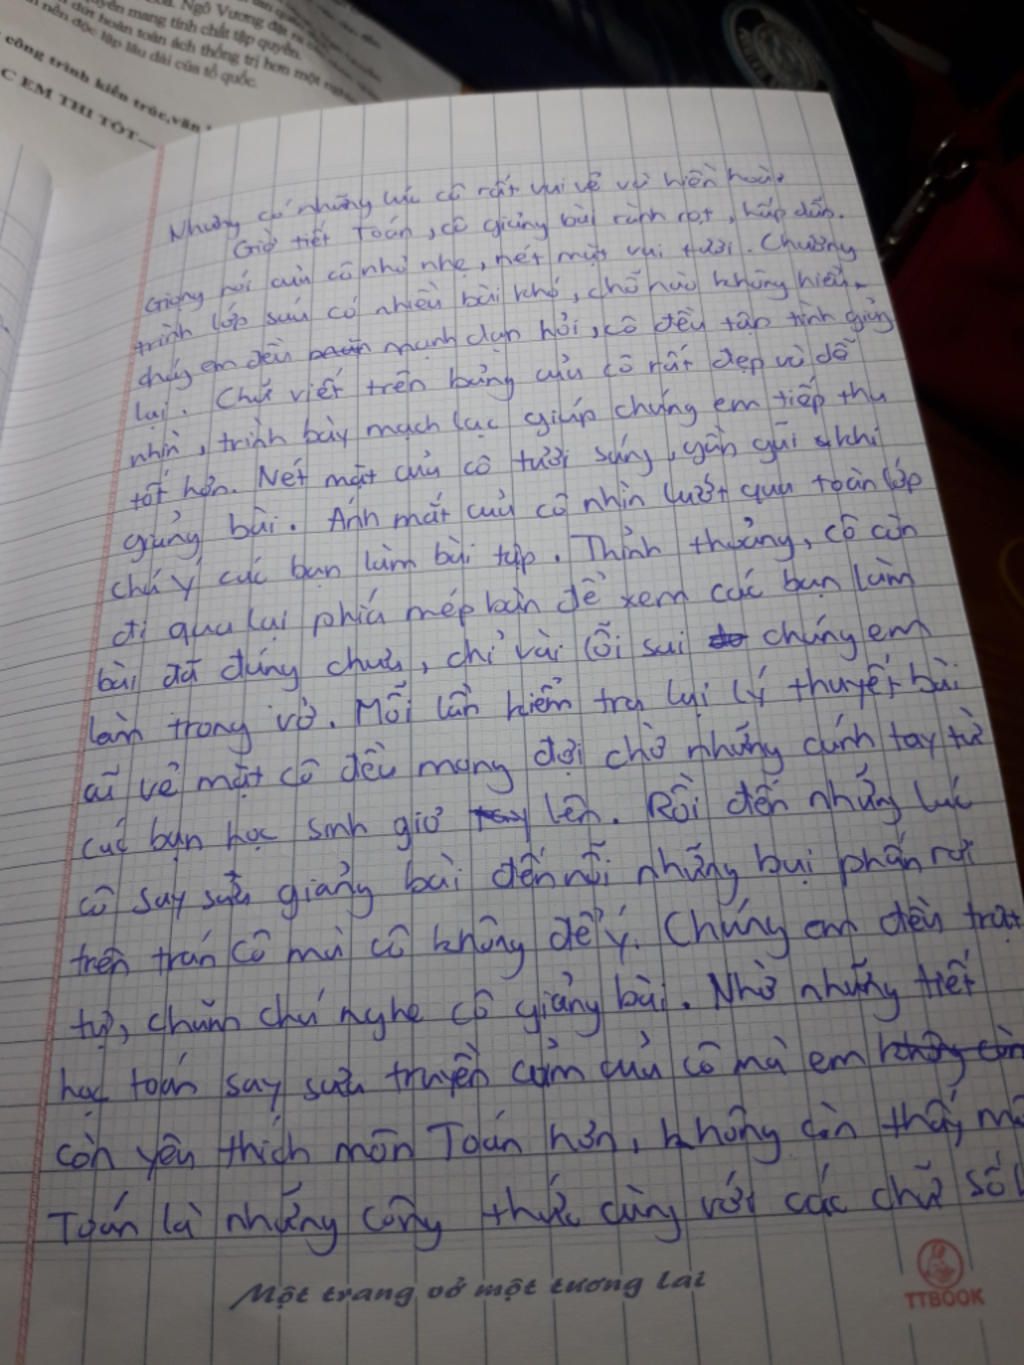 Ngô Vương đặt ra
mang tính chất tập quyền.
dứt hoàn toàn ách thống trị hơn một
nền độc lập lâu dài của tổ quốc.
công trình kiến trúc, văn
C EM THI TỐT
Nhưng có những lúc cô rất vui vẻ và hiền hoà.
Giờ tiết Toán, cô giảng bài rành rọt, hấp dẫn.
Giọng nói của cô nhỏ nhẹ, nét mặt vui tươi. Chương
trình lớp sáu có nhiều bài khó, chỗ nào không hiểu,
chúng em đều mạnh dạn hỏi, cô đều tận tình giảng
lại. Chữ viết trên bảng của cô rất đẹp và dễ
nhìn, trình bày mạch lạc giúp chúng em tiếp thu
tốt hơn. Nét mặt của cô tươi sáng, gần gũi khi
giảng bài. Ánh mắt của cô nhìn lướt qua toàn lớp
chú ý các bạn làm bài tập. Thỉnh thoảng, cô còn
đi qua lại phía mép bàn để xem các bạn làm
bài đã đúng chưa, chỉ vài lỗi sai chúng em
làm trong vở. Mỗi lần kiểm tra lại lý thuyết bài
cũ vẻ mặt cô đều mong đợi chờ những cánh tay từ
các bạn học sinh giơ lên. Rồi đến những lúc
cô say sưa giảng bài đến nỗi những bụi phấn rơi
trên trán cô mà cô không để ý. Chúng em đều trật
tự, chăm chú nghe cô giảng bài. Nhờ những tiết
học toán say sưa truyền cảm của cô mà em không còn
còn yêu thích môn Toán hơn, không còn thấy
Toán là những công thức cùng với các chữ số
Một trang vở một tương lai
TTBOOK